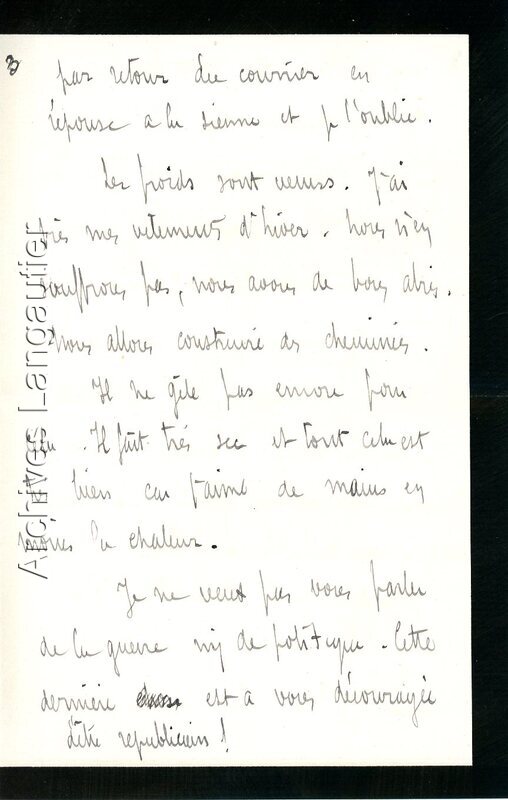 3
par retour du courrier en
réponse a la sienne et je l'oublie.
Les froids sont venus. J'ai
mes vetements d'hiver. Nous n'en
souffrons pas, nous avons de bons abris.
Nous allons construire des cheminées.
Il ne gèle pas encore pour
. Il fait très sec et tout cela est
bien car j'aime de moins en
moins la chaleur.
Je ne veux pas vous parler
de la guerre ni de politique. Cette
dernière est a vous décourager
d'être republicain!
Archives Langautier